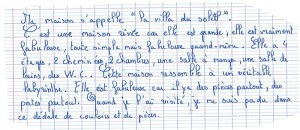 Ma maison s'appelle "la villa du soleil".
C'est une maison rêvée car elle est grande, elle est vraiment
fabuleuse, toute simple mais fabuleuse quand-même. Elle a 4
étages, 2 cheminées, 2 chambres, une salle à manger, une salle de
bains, des W.C.. Cette maison ressemble à un véritable
labyrinthe. Elle est fabuleuse car il y a des pièces partout, des
portes partout. Quand je l'ai visité, je me suis perdu dans
ce dédale de couloirs et de pièces.